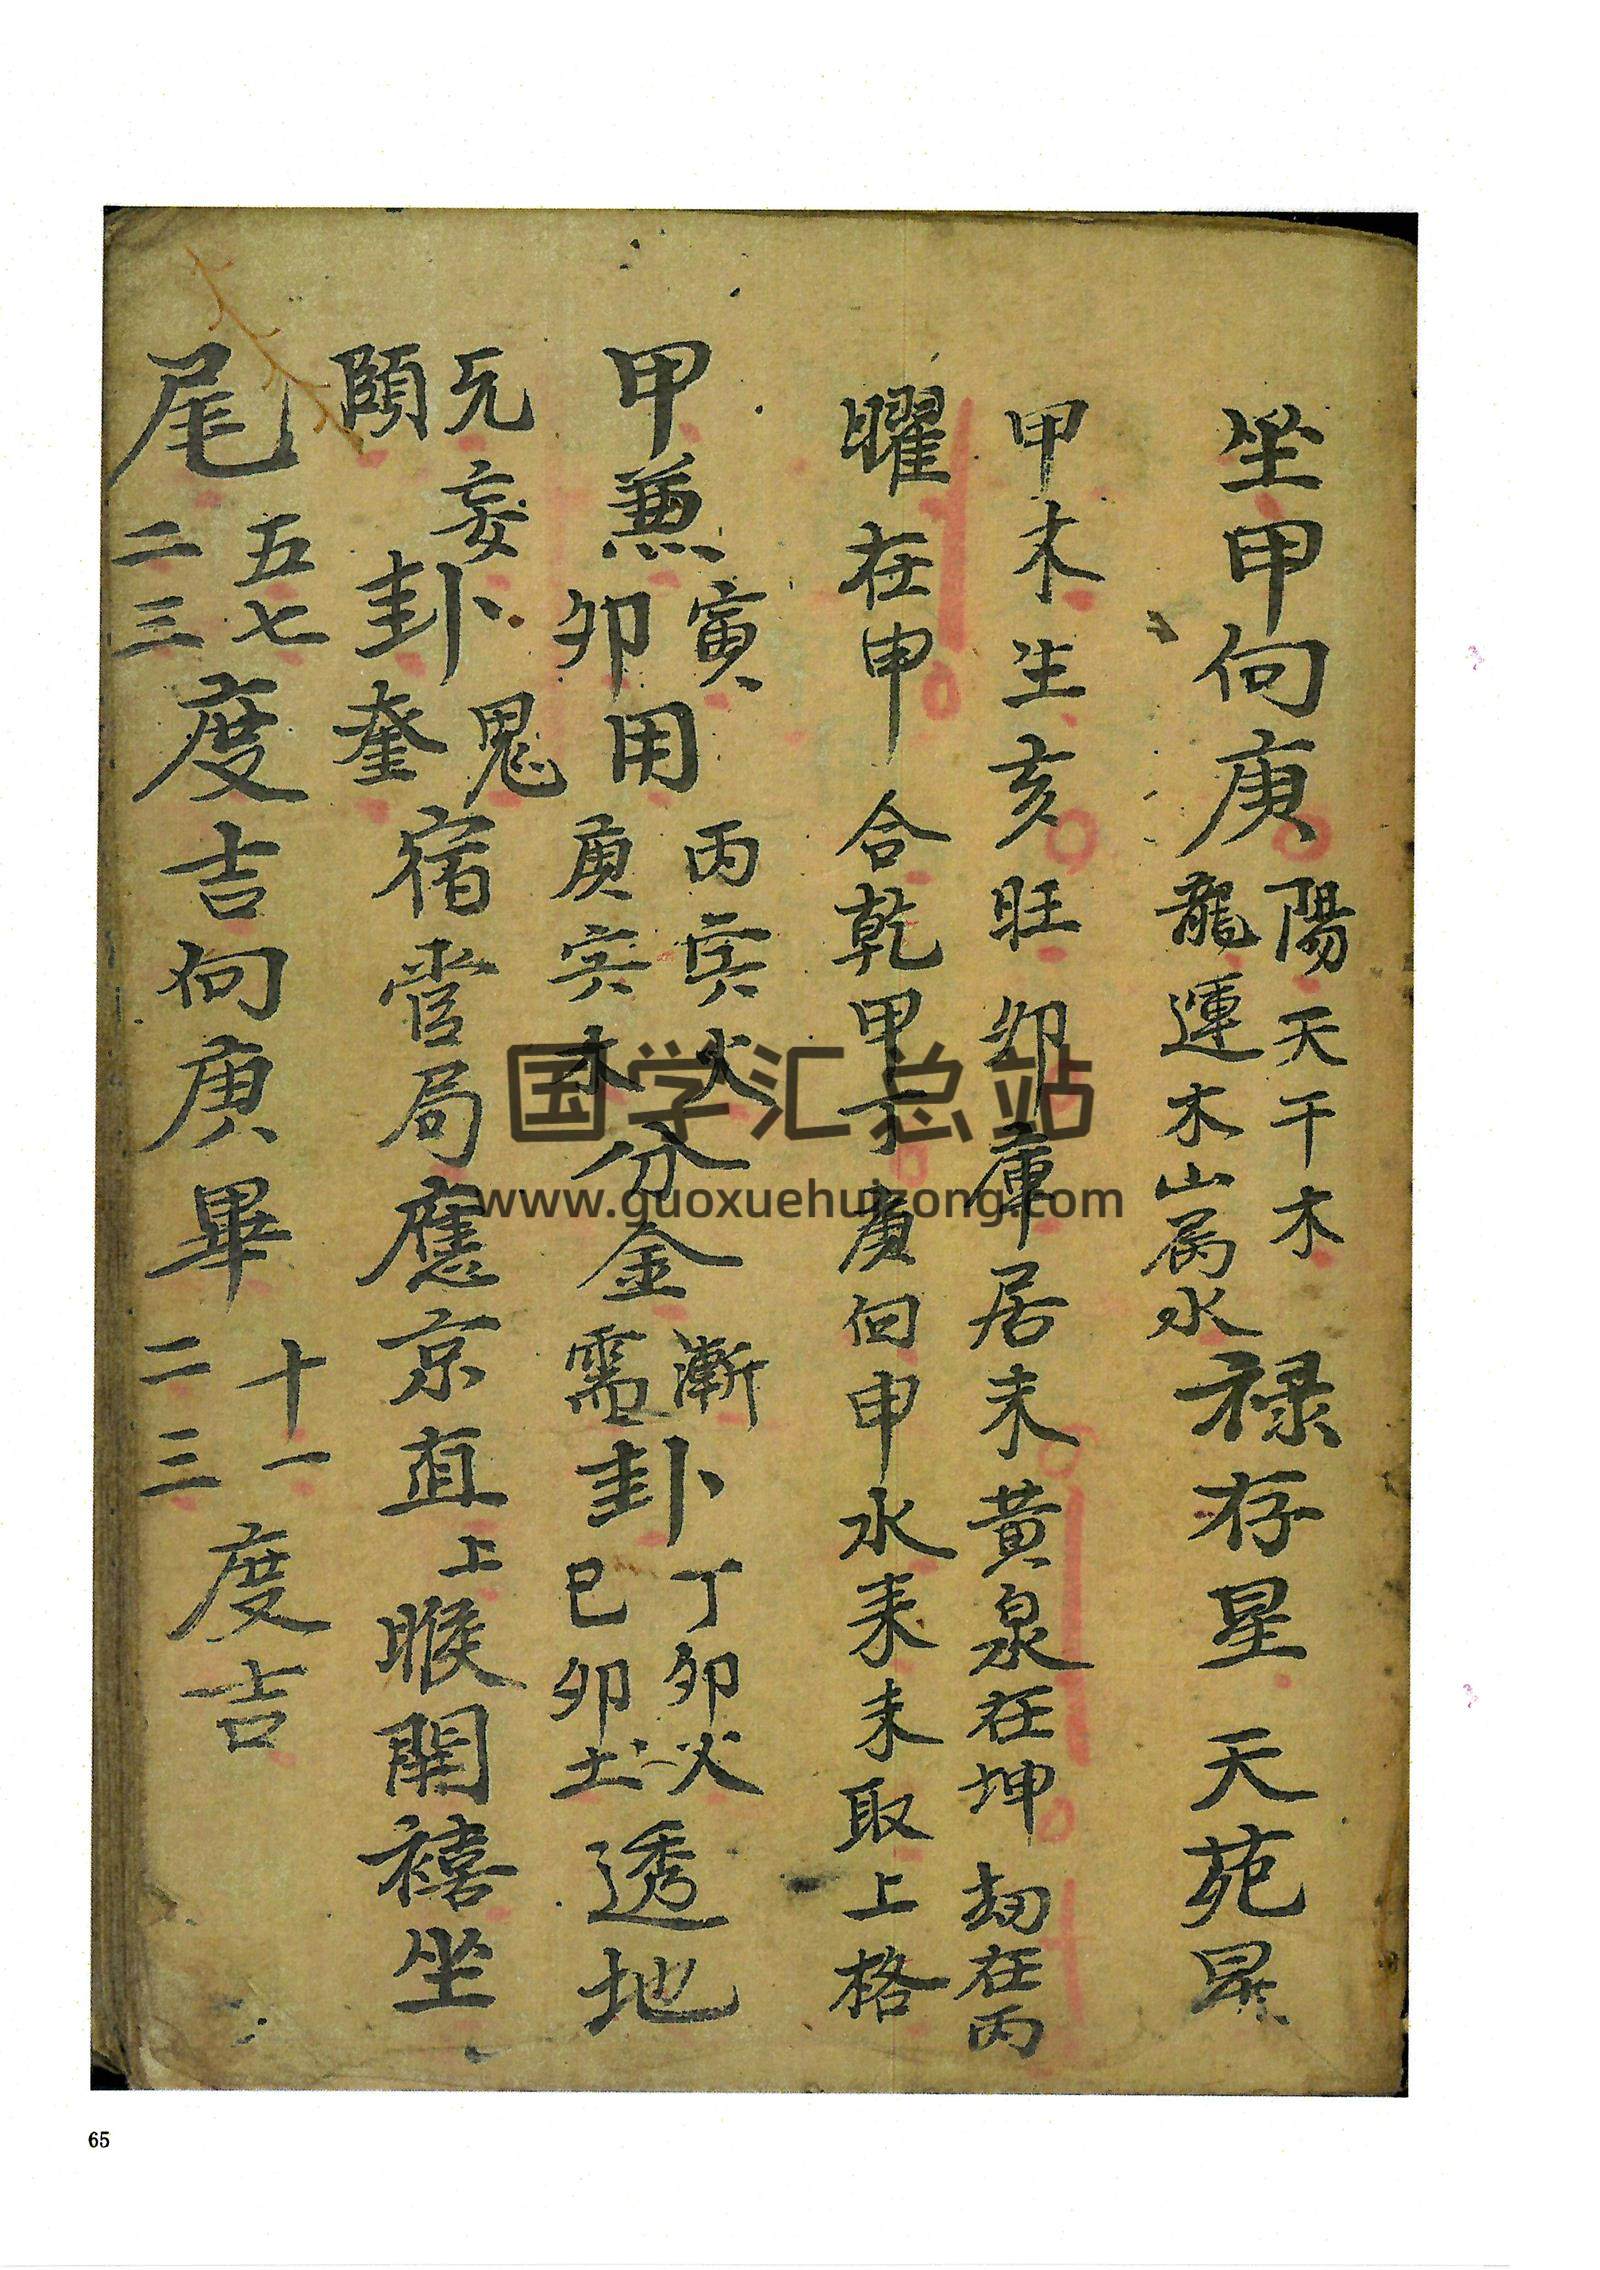 坐甲向庚
陽天干木
龍運木山屬水
禄存星 天苑星
甲木生亥旺卯庫居未黄泉在坤劫在丙
曜在申 合乾甲丁庚向申水來未取上格
甲兼
寅
卯
用
丙寅火
庚寅木
分金
漸
需
卦
丁卯火
己卯土
透地
无妄
頤
卦
鬼
奎
宿管局應京直上睺開禧坐
尾
五七
二三
度吉向庚畢
十一
二三
度吉
国学汇总站
www.guoxuehuizong.com
65